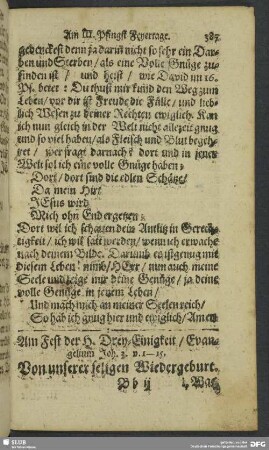 Am III. Pfingst Feyertage. 387
gedenckest denn ja darin nicht so sehr ein Dar-
ben und Sterben / als eine Volle Gnüge zu-
finden ist / und heist / wie David im 16.
Ps. betet: Du thust mir kund den Weg zum
Leben / vor dir ist Freude die Fülle / und lieb-
lich Wesen zu deiner Rechten ewiglich. Kan
ich nun gleich in der Welt nicht allezeit gnug
und so viel haben / als Fleisch und Blut begeh-
ret / wer fragt darnach? dort und in jener
Welt sol ich eine volle Gnüge haben:
Dort / dort sind die edlen Schätze /
Da mein Hirt
JEsus wird
Mich ohn End ergetzen:
Dort wil ich schauen dein Antlitz in Gerech-
tigkeit / ich wil satt werden / wenn ich erwache
nach deinem Bilde. Darumb es ist genug mit
diesem Leben! nimb / HErr / nun auch meine
Seele und zeige mir deine Genüge / ja deine
volle Genüge in jenem Leben /
Und mach mich an meiner Seelen reich /
So hab ich gnug hier und ewiglich / Amen
Am Fest der H. Drey-Einigkeit / Evan-
gelium Joh. 3. v. 1–15.
Von unserer seligen Wiedergeburt.
Bb ij
1. Was
SLUB